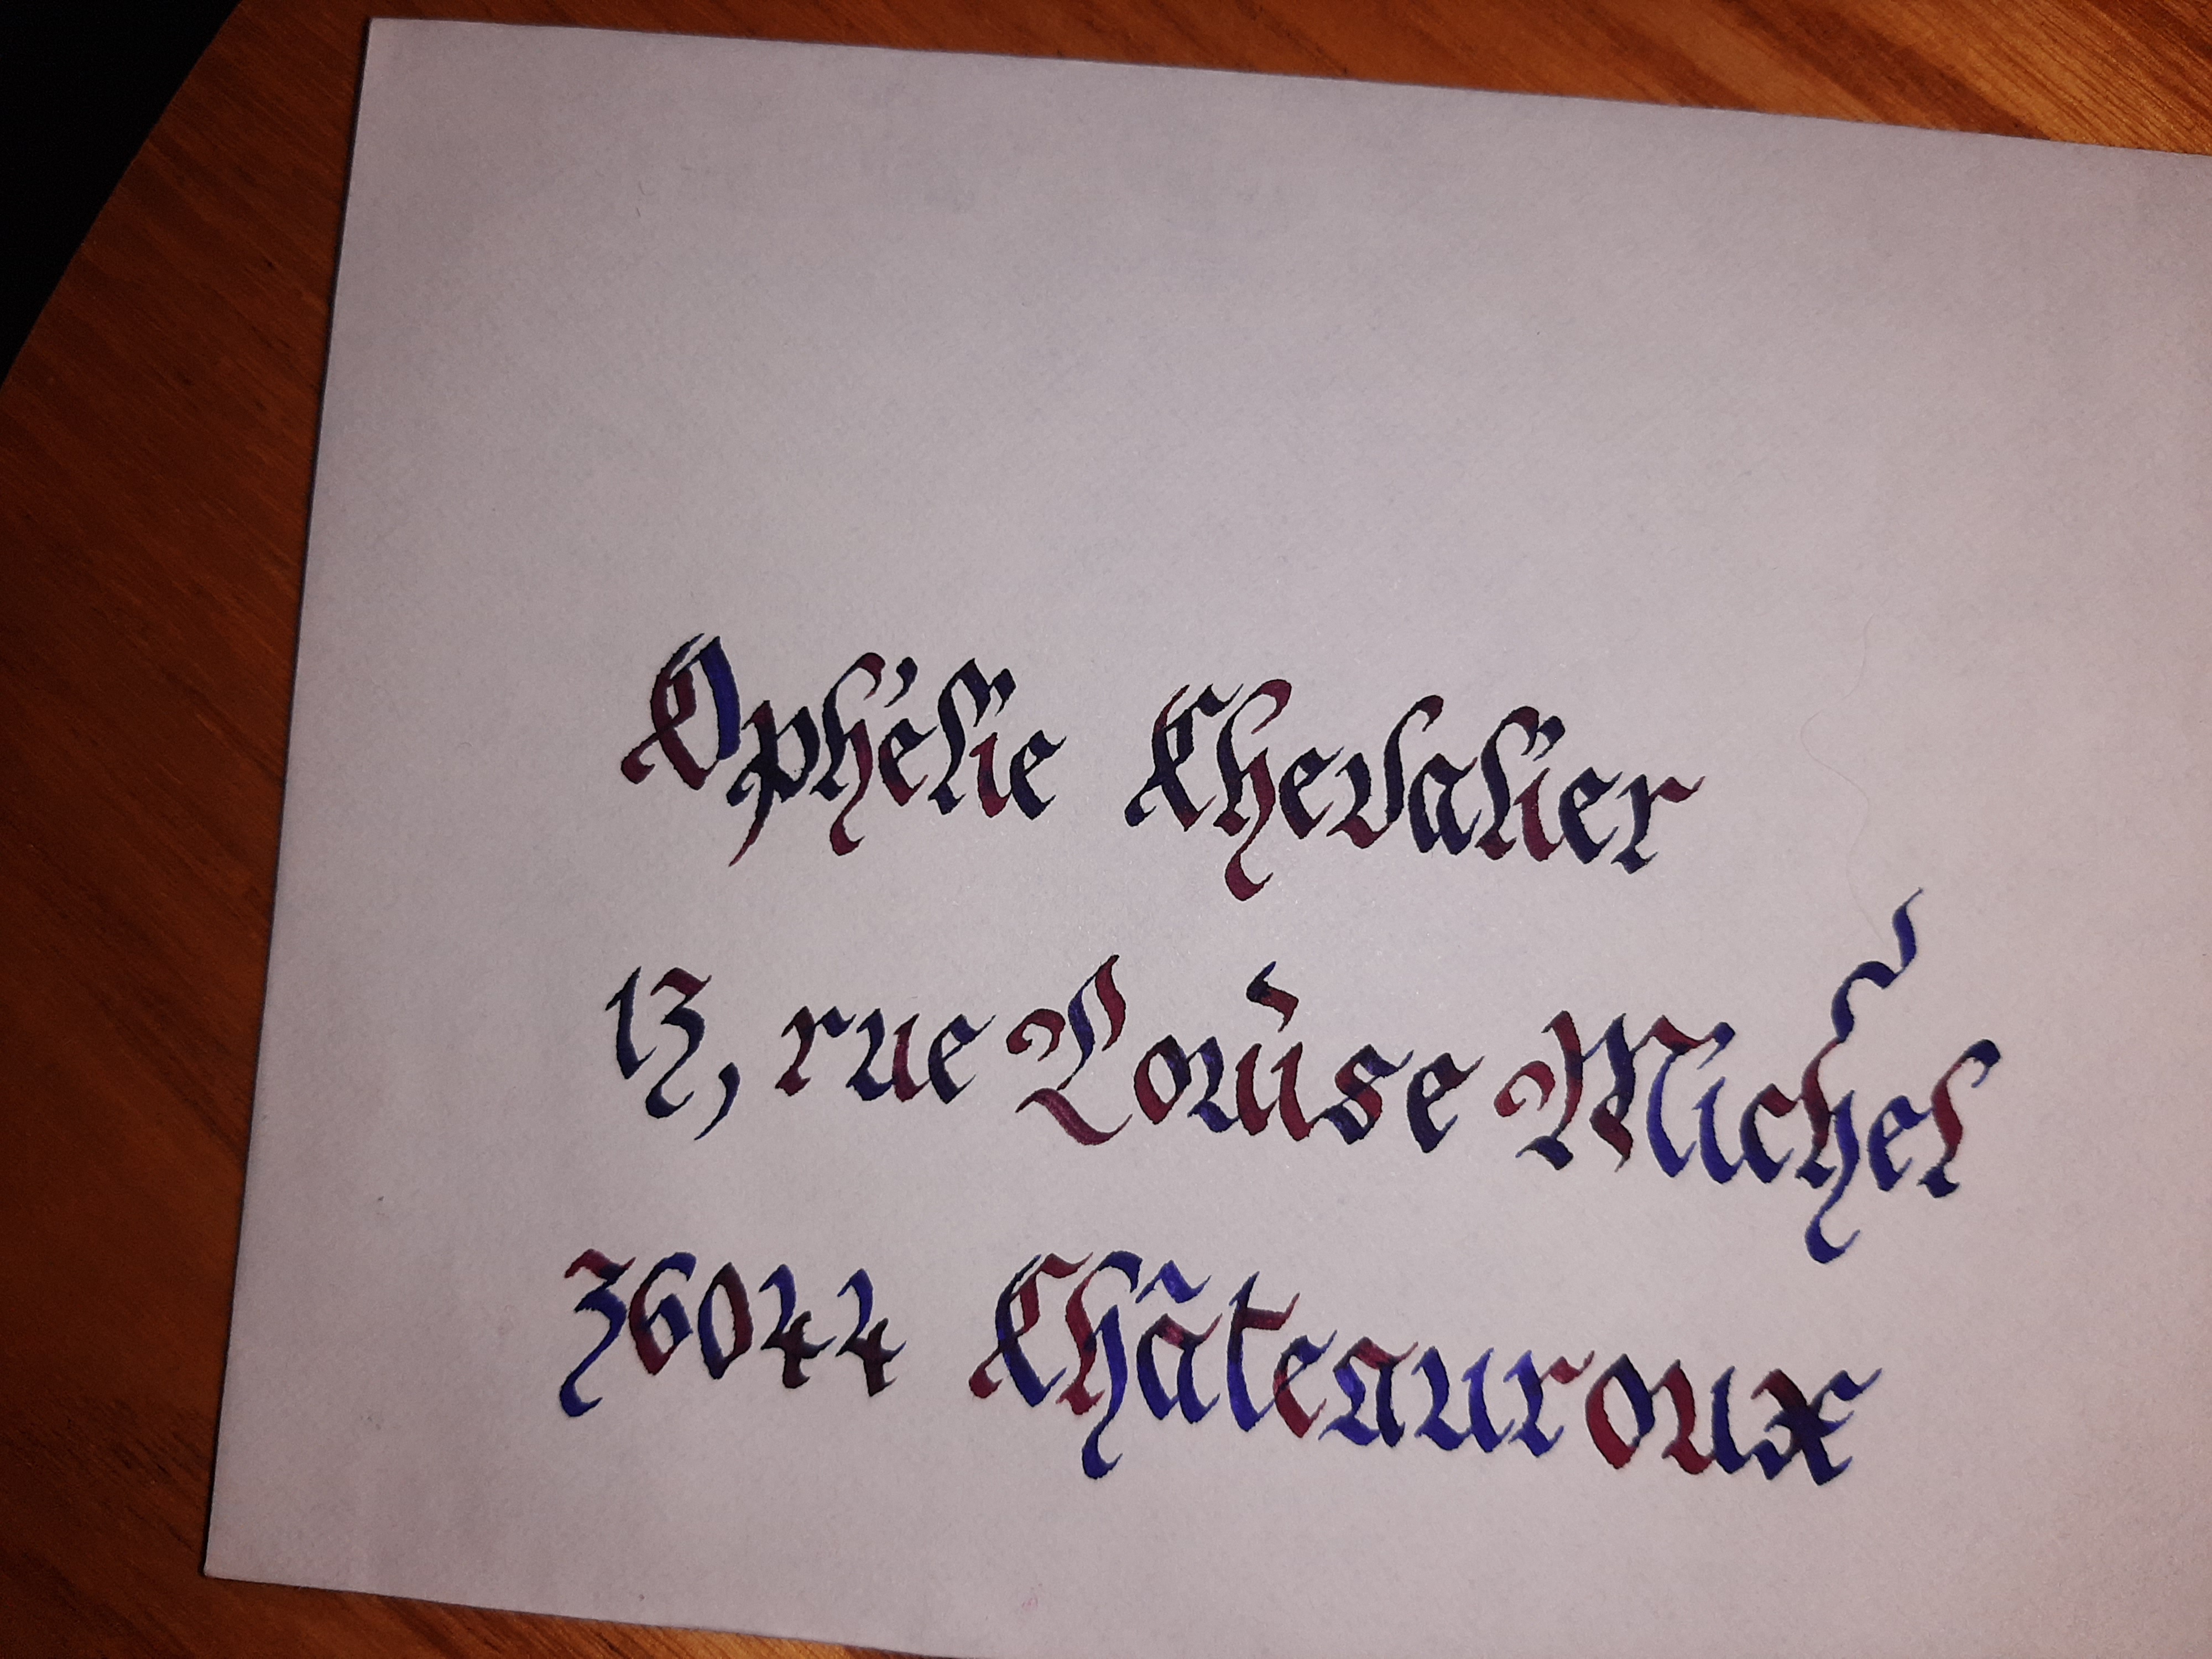 Ophélie Chevalier
13, rue Louise Michel
36044 Châteauroux